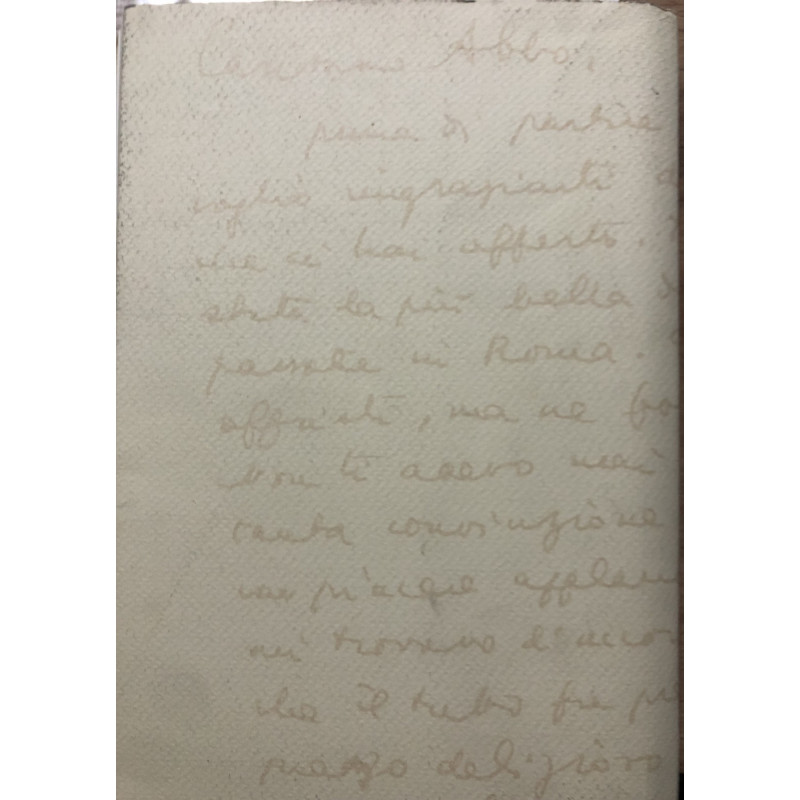 Carissimo Abbo,
prima di partire
voglio ringraziarti
ci hai offerto.
stata la più bella
passate in Roma.
affinità, ma ne
Non ti avevo mai
tanta convinzione
mi piacque
mi trovavo d'accor
che il tutto fu
pranzo delizioso